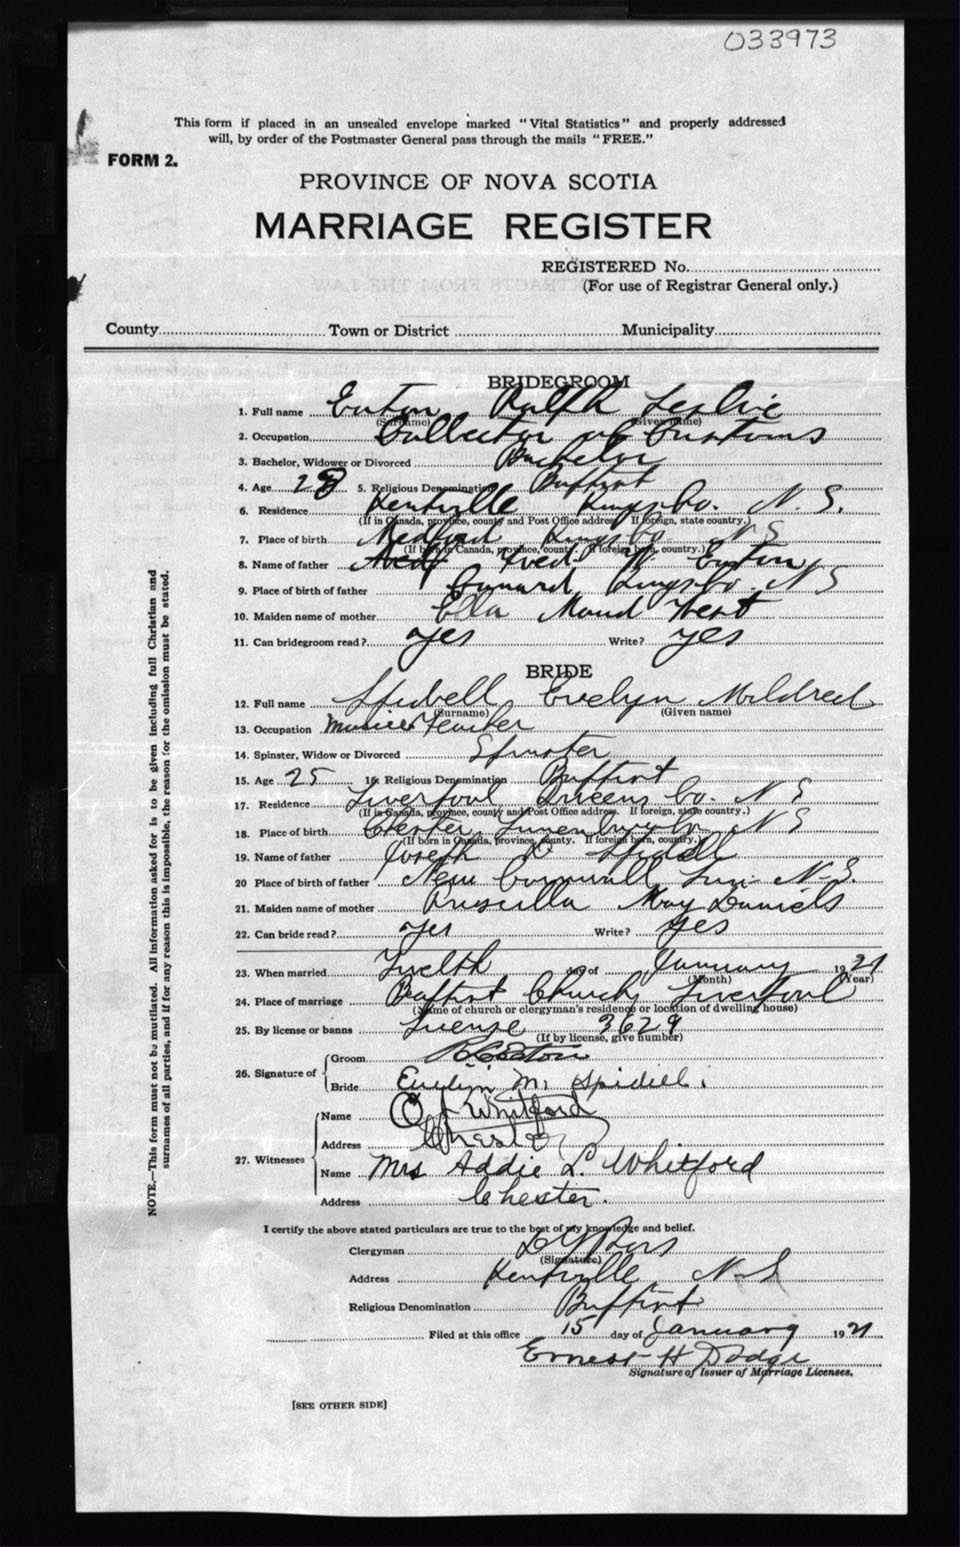 033973
This form if placed in an unsealed envelope marked "Vital Statistics" and properly addressed
will, by order of the Postmaster General pass through the mails "FREE."
FORM 2.
PROVINCE OF NOVA SCOTIA
MARRIAGE REGISTER
REGISTERED No.
(For use of Registrar General only.)
County Town or District Municipality
BRIDEGROOM
1. Full name Eaton Ralph Leslie
(Surname) (Given name)
2. Occupation Collector of Customs
3. Bachelor, Widower or Divorced Bachelor
4. Age 28 5. Religious Denomination Baptist
6. Residence Kentville Kings Co. N. S.
(If in Canada, province, county and Post Office address. If foreign, state country.)
7. Place of birth Medford Kings Co N S
(If born in Canada, province, county. If foreign born, country.)
8. Name of father Fred W Eaton
9. Place of birth of father Kings Co. N S
10. Maiden name of mother Ella Maud West
11. Can bridegroom read? yes Write? yes
BRIDE
12. Full name Spidell Evelyn Mildred
(Surname) (Given name)
13. Occupation Music Teacher
14. Spinster, Widow or Divorced Spinster
15. Age 25 16. Religious Denomination Baptist
17. Residence Liverpool Queens Co. N S
(If in Canada, province, county and Post Office address. If foreign, state country.)
18. Place of birth Chester, Lunenburg Co N S
(If born in Canada, province, county. If foreign born, country.)
19. Name of father Joseph Spidell
20 Place of birth of father New Cornwall, Lun. N-S.
21. Maiden name of mother Priscilla May Daniels
22. Can bride read? yes Write? yes
23. When married Twelth day of January 1921
(Month) (Year)
24. Place of marriage Baptist Church, Liverpool
(Name of church or clergyman's residence or location of dwelling house)
25. By license or banns License 3629
(If by license, give number)
26. Signature of Groom Eaton
Bride Evelyn M. Spidell.
27. Witnesses Name Whitford
Address Chester
Name Mrs Addie L. Whitford
Address Chester.
I certify the above stated particulars are true to the best of my knowledge and belief.
Clergyman
(Signature)
Address Kentville N-S
Religious Denomination Baptist
Filed at this office 15 day of January 1921
Ernest H Dodge
Signature of Issuer of Marriage Licenses.
[SEE OTHER SIDE]
NOTE.—This form must not be mutilated. All information asked for is to be given including full Christian and
surnames of all parties, and if for any reason this is impossible, the reason for the omission must be stated.